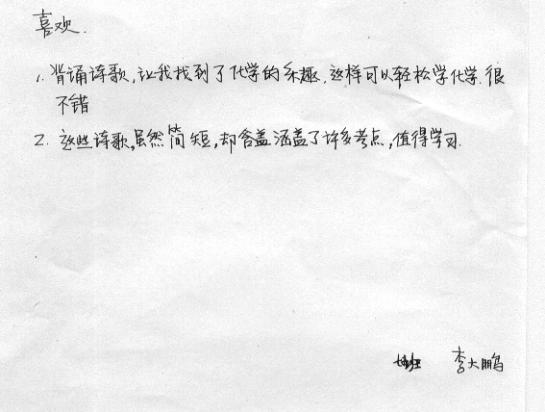 喜欢.
1. 背诵诗歌,让我找到了化学的乐趣,这样可以轻松学化学.很
不错
2. 这些诗歌,虽然简短,却含盖涵盖了许多考点,值得学习.
李大鹏